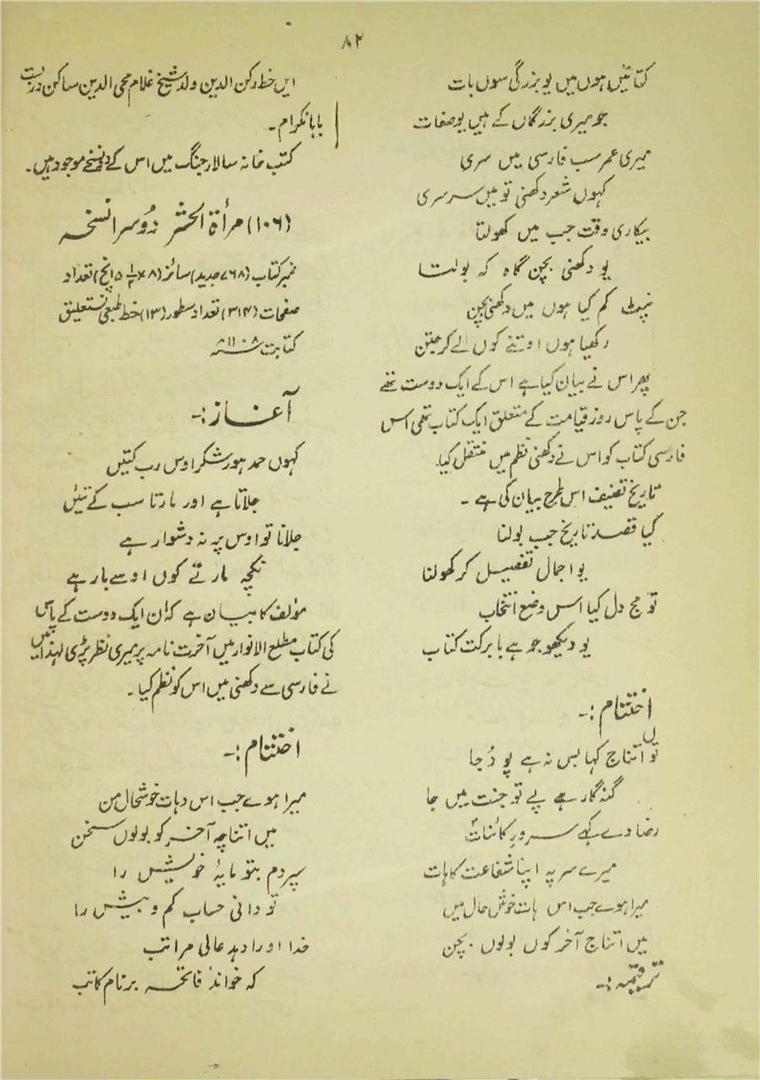 ۸۲
کتائیں ہوں میں یو بزرگی سوں بات
جو میری بزرگاں کے ہیں یو صفات
میری عمر سب فارسی میں سری
کہوں شعر دکھنی تو میں سرسری
بیکاری وقت جب میں کھولتا
یو دکھنی بچن گاہ کہ بولتا
نپٹ کم کیا ہوں میں دکھنی بچن
رکھیا ہوں اوتنے کوں لے کر جتن
پھر اس نے بیان کیا ہے اس کے ایک دوست تھے
جن کے پاس روز قیامت کے متعلق ایک کتاب تھی اس
فارسی کتاب کو اس نے دکھنی نظم میں منتقل کیا۔
تاریخ تصنیف اس طرح بیان کی ہے ۔
کیا قصد تاریخ جب بولنا
یو اجمال تفصیل کر کھولنا
تو مج دل کیا اس وضع انتخاب
یو دیکھو جو ہے بابرکت کتاب
اختتام :-
توں اتناج کہا بس نہ ہے پو دُجا
گنہگار ہے پے تو جنت میں جا
رضا دے کہے سرور کائنات
میرے سر پہ اپنا شفاعت کا ہات
میرا ہوے جب اس بات خوش حال میں
میں اتناج آخر کوں بولوں بچن
ترقیمہ :-
ایں خط رکن الدین ولد شیخ غلام محی الدین ساکن در بست
بابا نکرام ۔
کتب خانہ سالار جنگ میں اس کے دو نسخے موجود ہیں۔
(۱۰۶) مرأۃ الحشر دوسرا نسخہ
نمبر کتاب (۷۶۸ جدید) سائز (۸ × ۵ ۱/۲ انچ) تعداد
صفحات (۳۱۴) تعداد سطور (۱۳) خط طبعی نستعلیق
کتابت سنہ ۱۱۰۸ھ
آغاز :-
کہوں حمد ہور شکر اوس رب کتیں
جلاتا ہے اور مارتا سب کے تئیں
جلانا تو اوس پر نہ دشوار ہے
نکچہ مارتے کوں اوسے بار ہے
مؤلف کا بیان ہے کہ ان ایک دوست کے پاس
کی کتاب مطلع الانوار میں آخرت نامہ پر میری نظر پڑی لہذا میں
نے فارسی سے دکھنی میں اس کو نظم کیا ۔
اختتام :-
میرا ہوے جب اس دہات خوشحال من
میں اتناچہ آخر کو بولوں سخن
سپردم بتو مایۂ خویش را
تو دانی حساب کم و بیش را
خدا او را دہد عالی مراتب
کہ خواند فاتحہ برنام کاتب